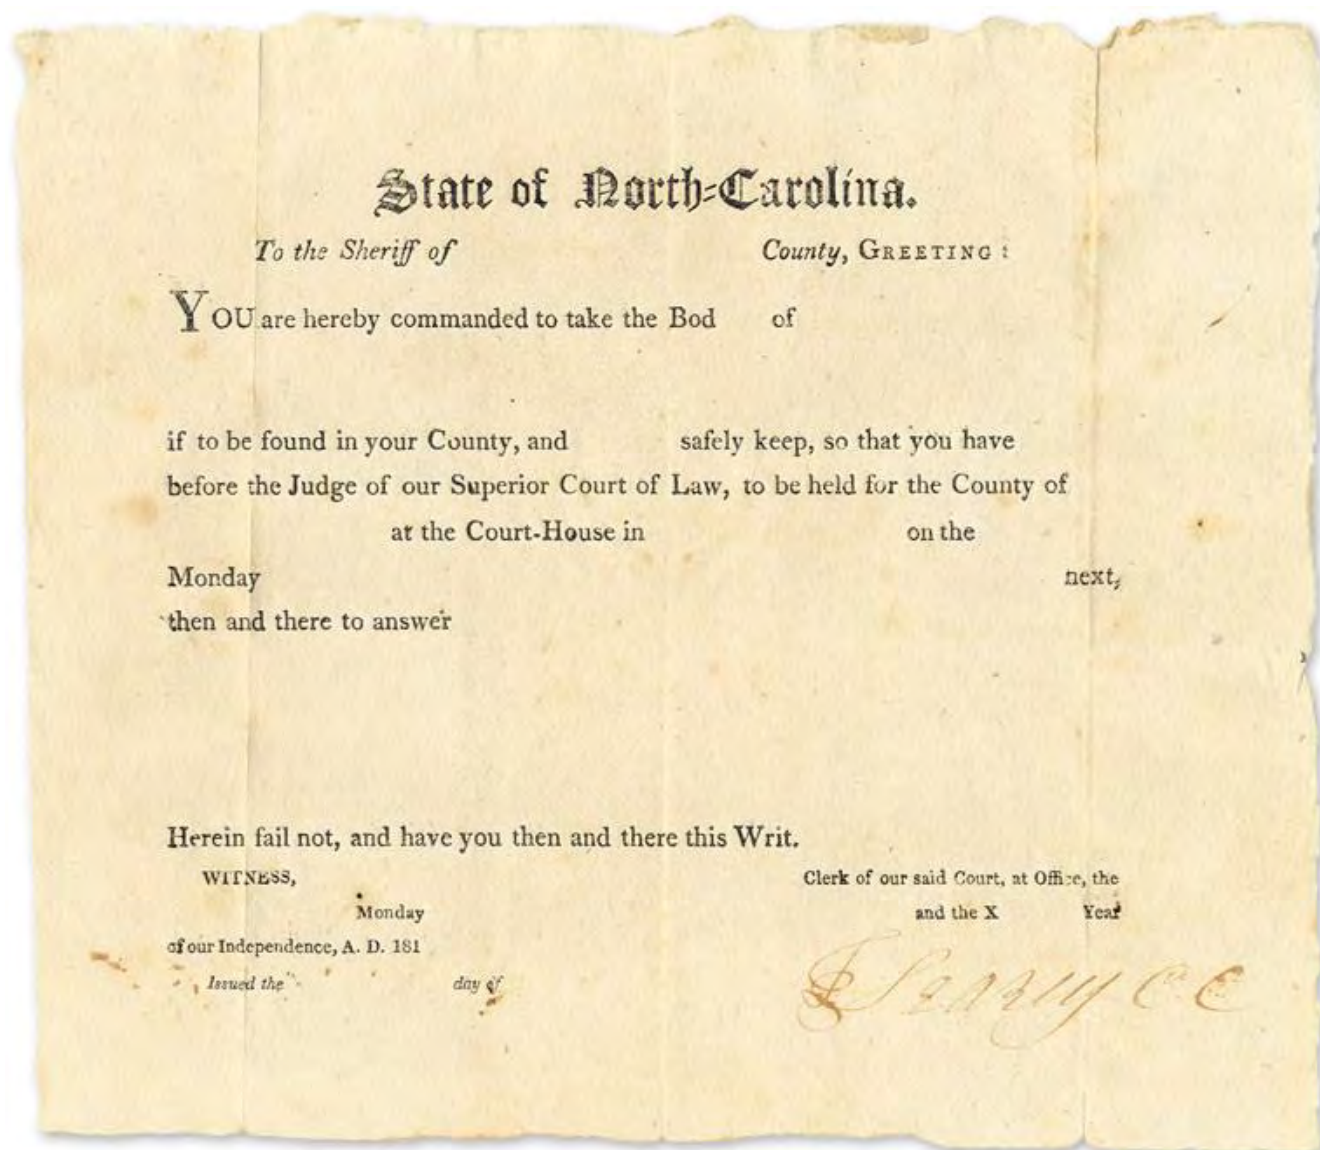 State of North-Carolina.
To the Sheriff of County, GREETING :
YOU are hereby commanded to take the Bod of
if to be found in your County, and safely keep, so that you have
before the Judge of our Superior Court of Law, to be held for the County of
at the Court-House in on the
Monday next,
then and there to answer
Herein fail not, and have you then and there this Writ.
WITNESS, Clerk of our said Court, at Office, the
Monday and the X Year
of our Independence, A. D. 181
Issued the day of